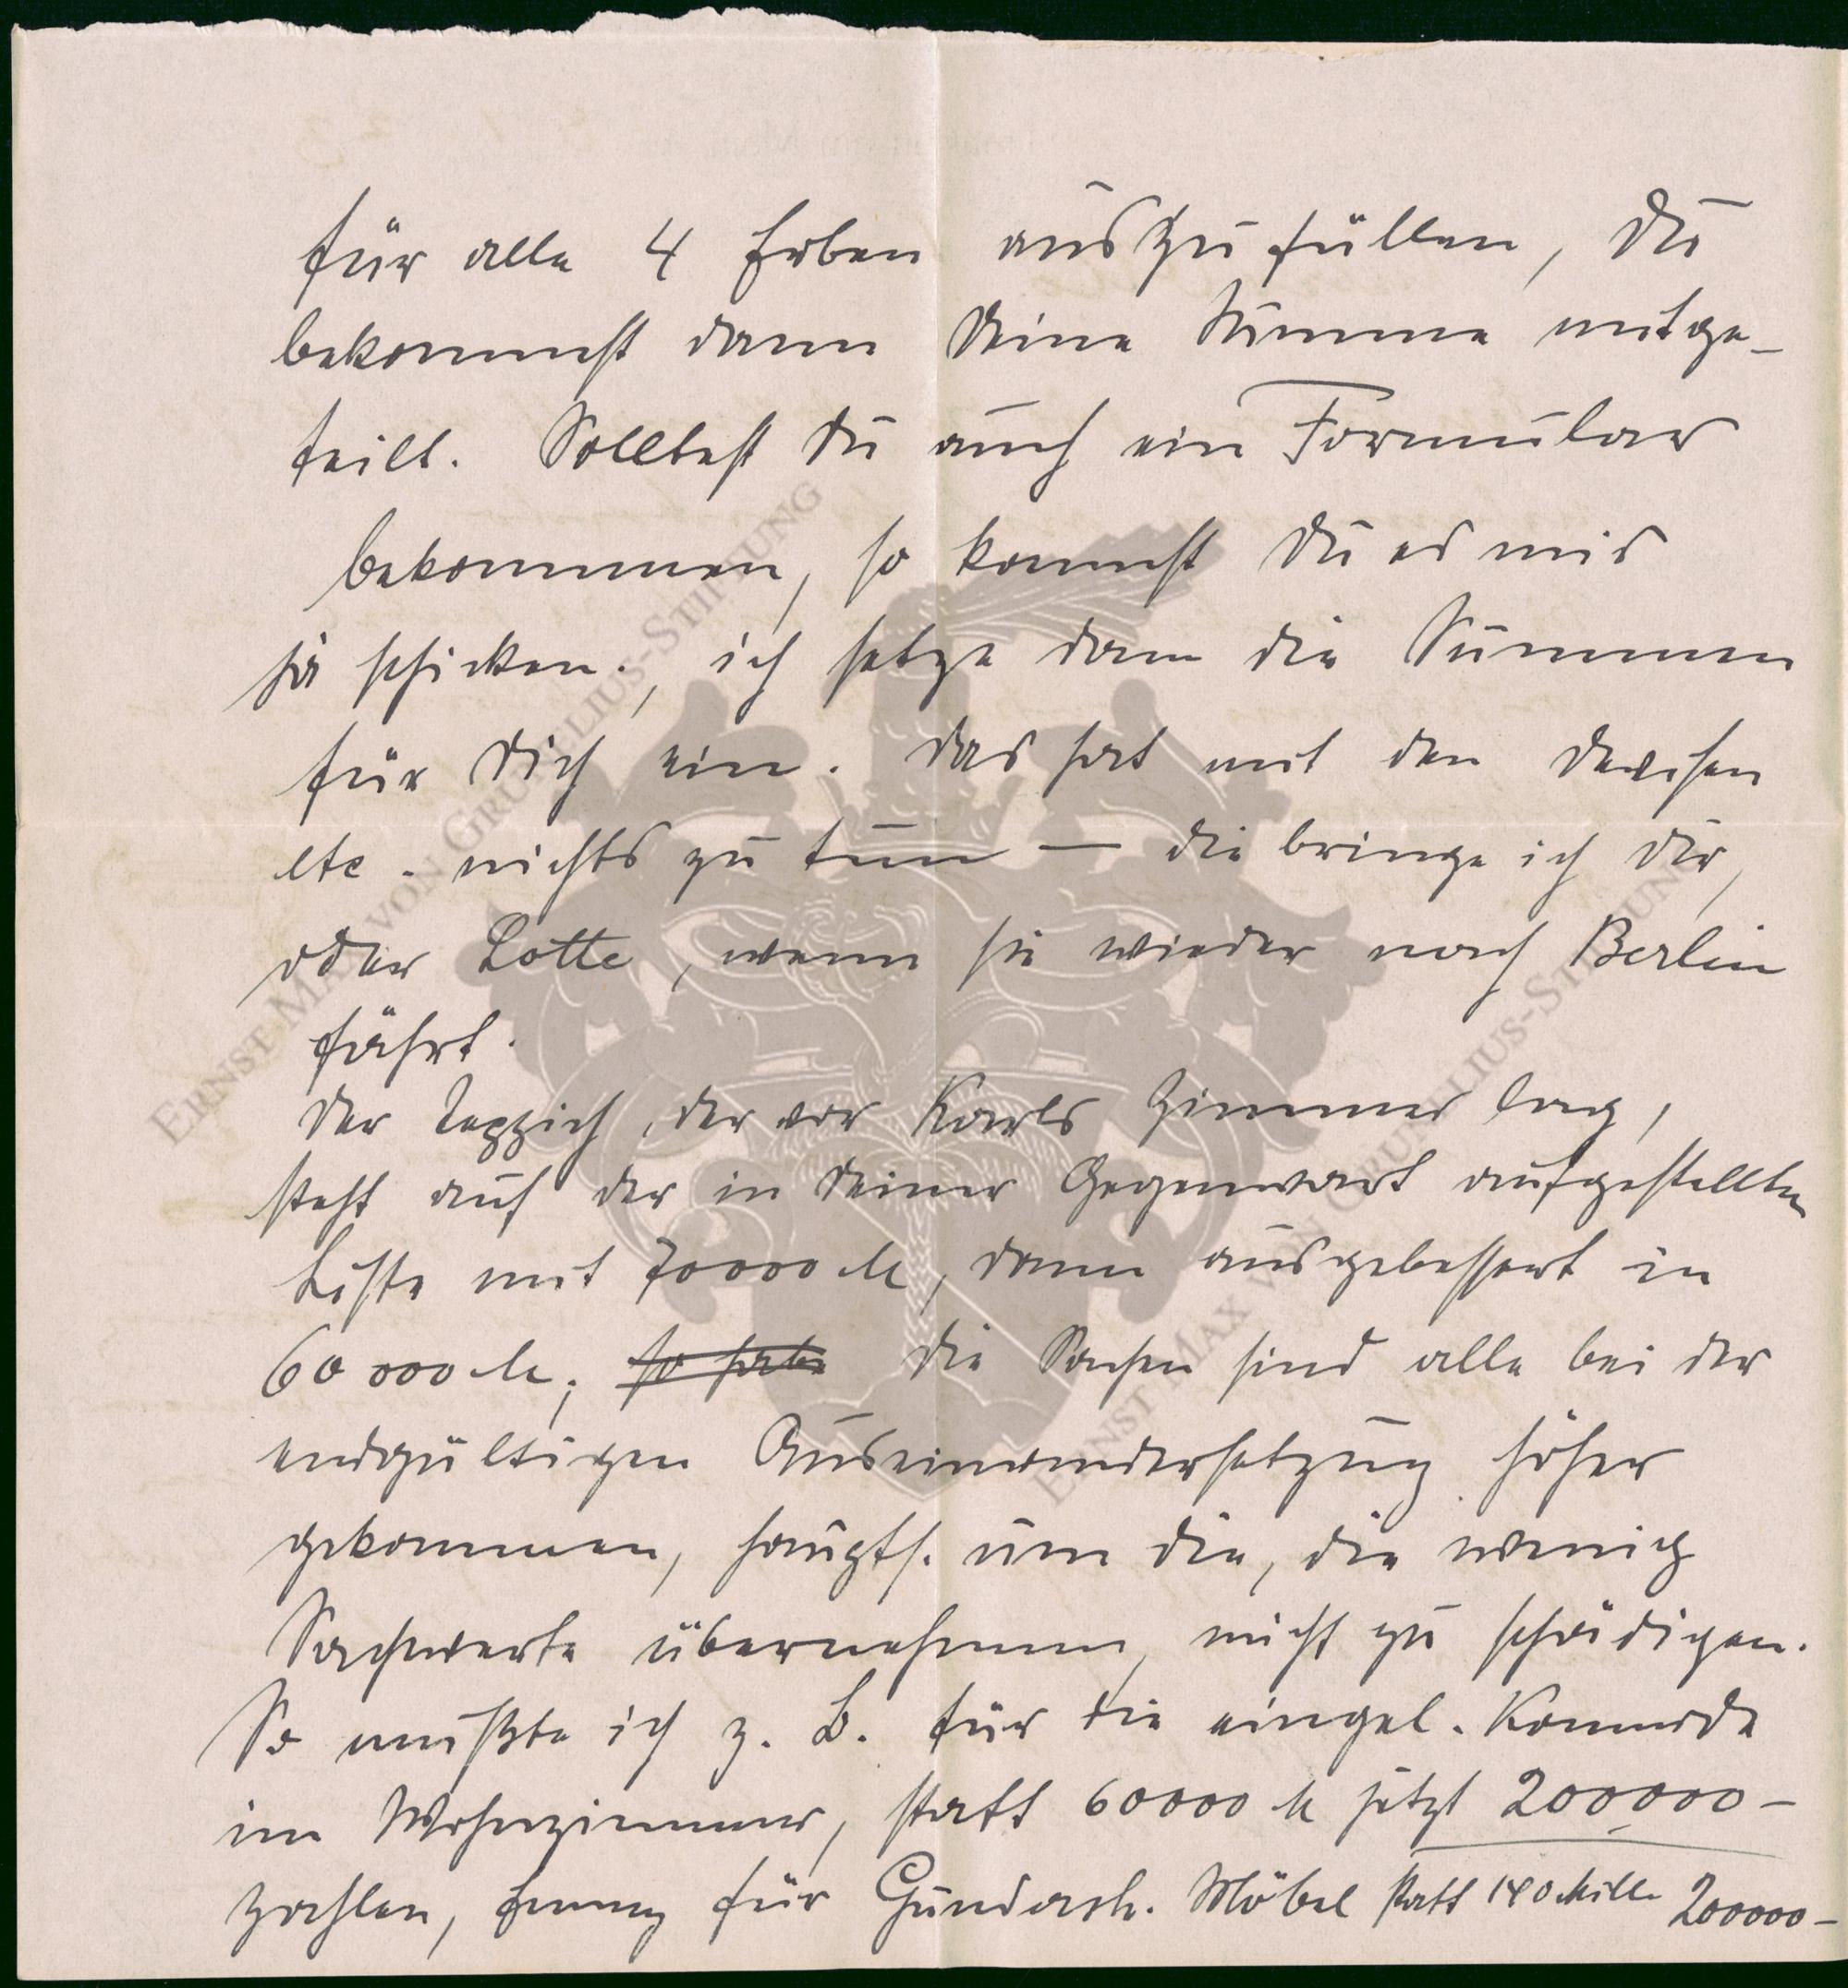 für alle 4 Erben auszufüllen, Du
bekommst dann Deine Summe mitge-
teilt. Solltest Du auch ein Formular
bekommen, so kannst Du es mir
ja schicken, ich setze dann die Summen
für Dich ein. Das hat mit den Devisen
etc. nichts zu tun — die bringe ich Dir,
oder Lotte, wenn sie wieder nach Berlin
fährt.
Der Teppich, der vor Karls Zimmer lag,
steht auf der in Deiner Gegenwart aufgestellten
Liste mit 70000 M, dann ausgebessert in
60 000 M; so habe die Sachen sind alle bei der
endgültigen Auseinandersetzung höher
gekommen, haupts. um die, die wenig
Sachwerte übernehmen, nicht zu schädigen.
So mußte ich z. B. für die eingel. Kommode
im Wohnzimmer, statt 60000 M jetzt 200000 –
zahlen, für Gundash. Möbel statt 140 Mille 200000 –
ERNST MAX VON GRUNELIUS-STIFTUNG
ERNST MAX VON GRUNELIUS-STIFTUNG